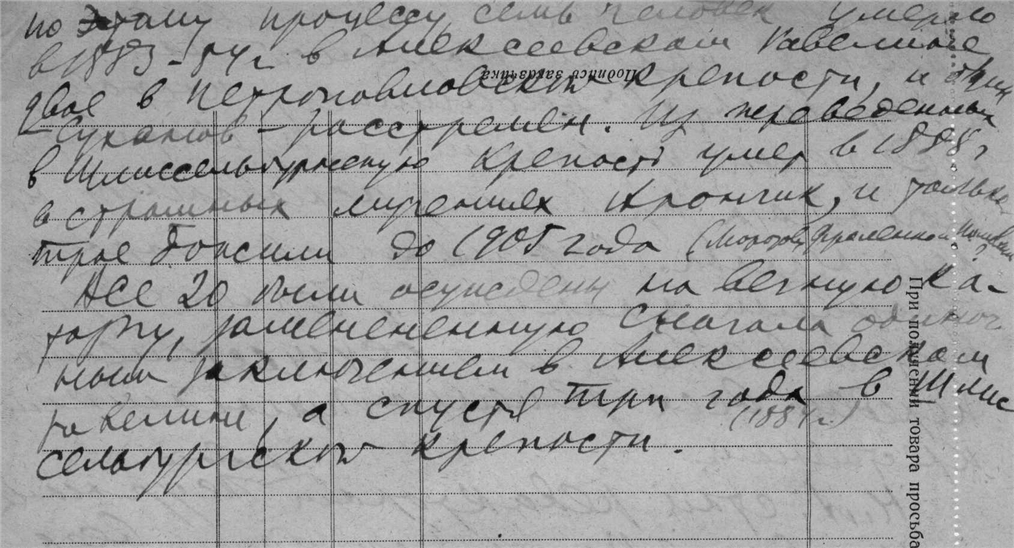 по этому процессу семь человек умерло
в 1883-84 г. в Алексеевском равелине
двое в Петропавловской крепости, и один
Суханов - расстрелян. Из переведенных
в Шлиссельбургскую крепость умер в 1888,
в страшных мучениях Арончик, и только
трое дожили до 1905 года (Морозов, Фроленко и
Все 20 были осуждены на вечную ка-
торгу, замененную сначала одиноч
ным заключением в Алексеевском
равелине, а спустя три года в Шлис
(1884 г.)
сельбургской крепости.
Подпись заказчика
При получении товара просьба